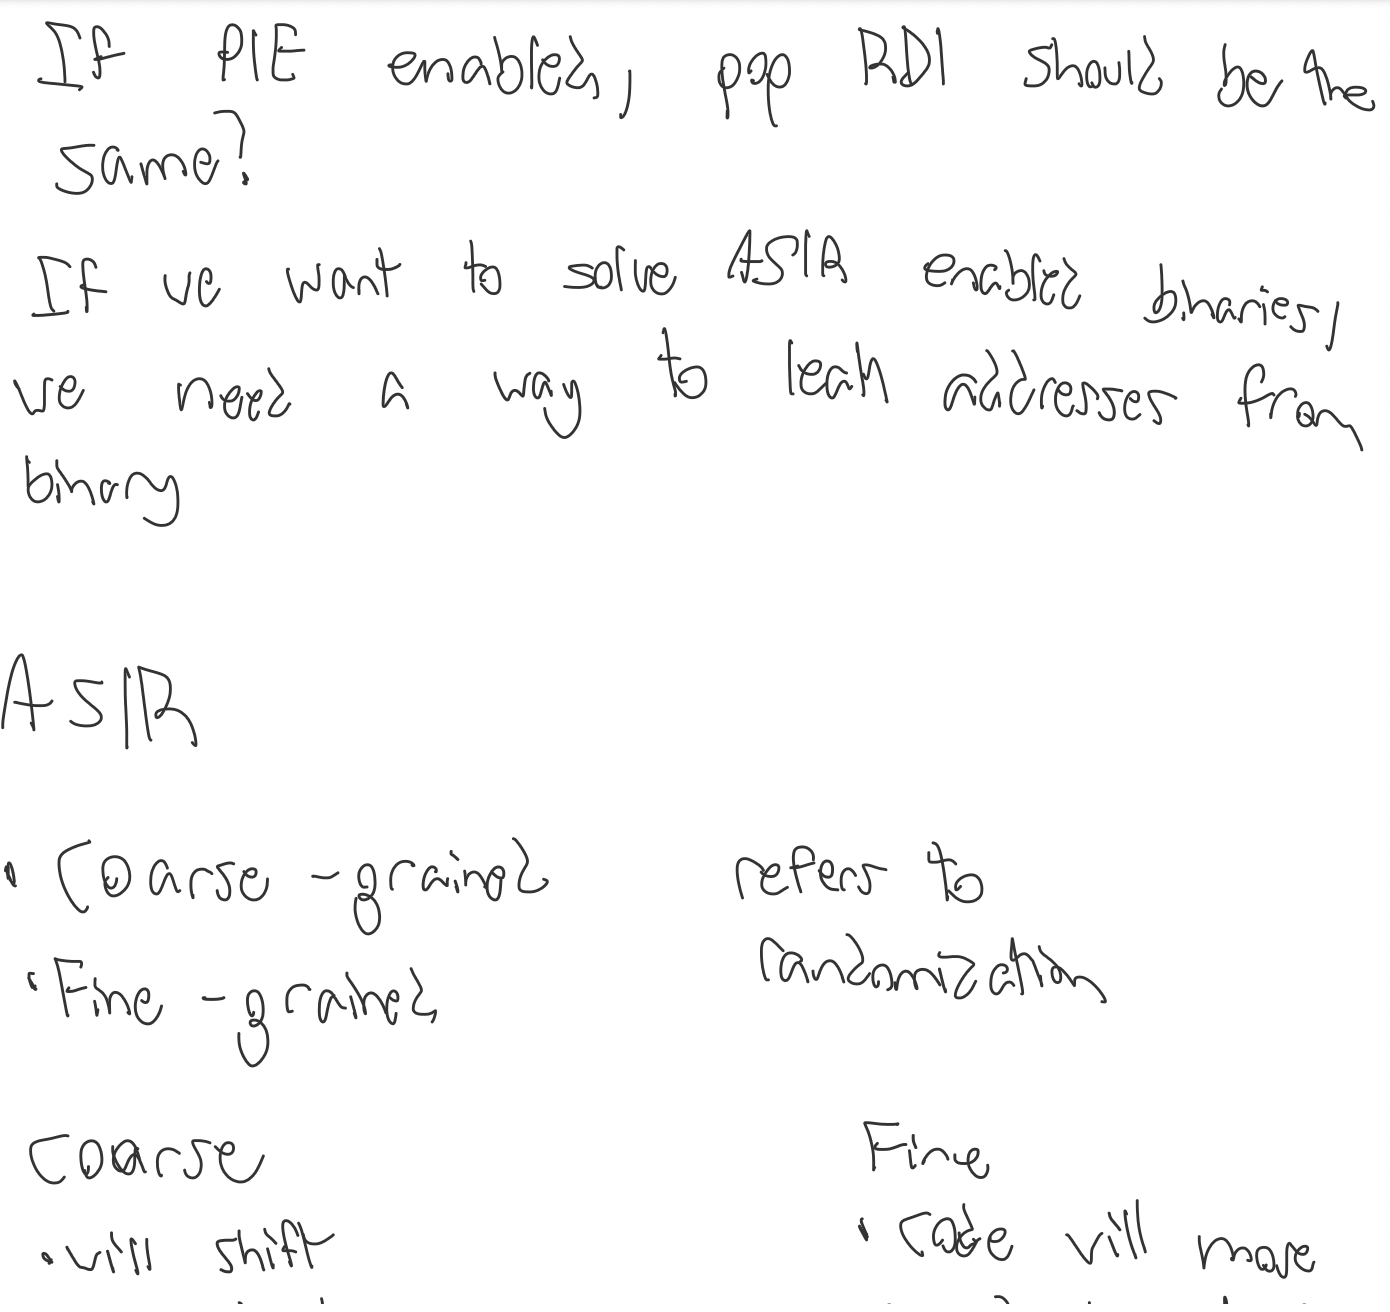 If PIE enabled, pop RDI should be the
same?
If we want to solve ASlR enabled binaries,
we need a way to leak addresses from
binary
ASlR
• Coarse-grained refers to
randomization
• Fine-grained
Coarse Fine
• will shift • code will move